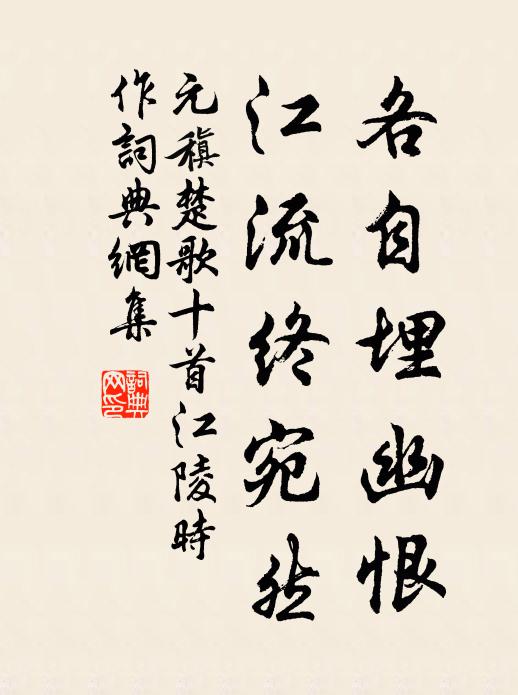 各自埋幽恨
江流終宛然
元稹楚歌十首江陵時
作詞典網集
詞典
网印